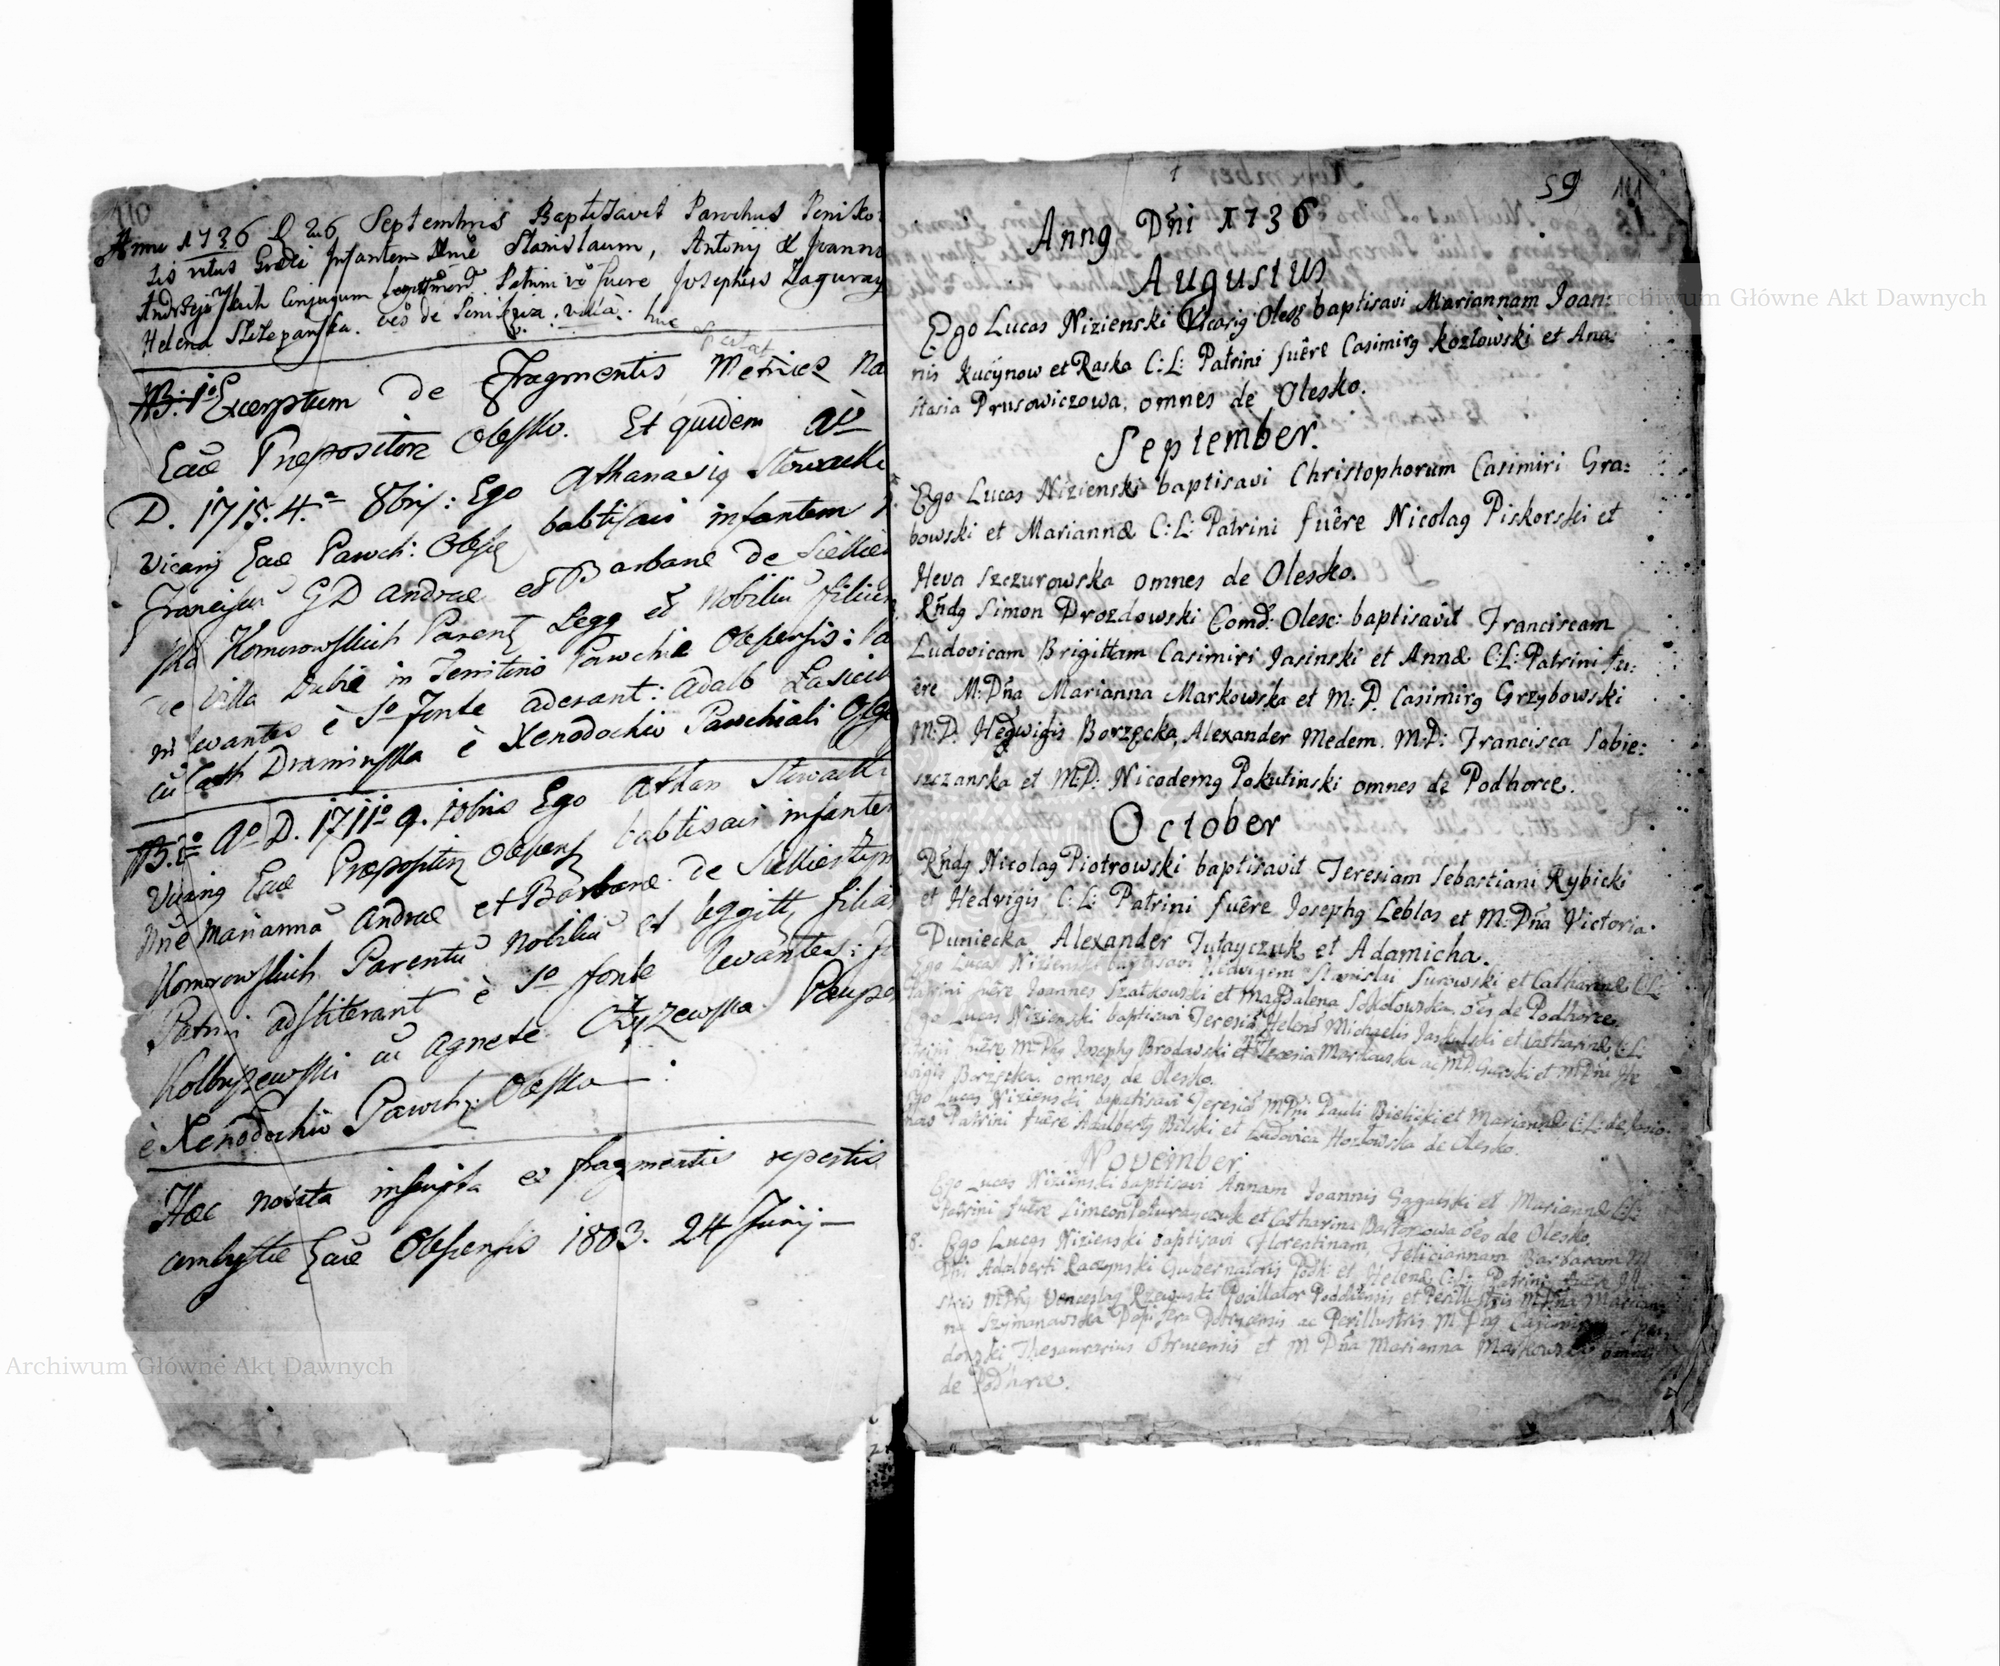 110
Anno 1736 D 26 Septembris Baptizavit Parochus Penikov
sis ritus Graeci Infantem Nne Stanislaum, Antonij et Joanna
Andrzejowskich Conjugum Patrini vo fuere Josephus Zaguray
Helena Sczepanska. oes de villa: huc
spectat
NB: 1o Excerptum de Fragmentis Metrices Na
Eccae Praepositoae Olesko. Et quidem Ao
D. 1715. 4.a 8bris: Ego Athanasig Slowacki
Vicarig Eccae Paroch: Oles babtisavi infantem N
Franciscu G D Andrae et Barbarae de Siellies
ska Komorowskich Parent Legg et Nobiliu filium
de Villa Dubie in Territorio Parochiae Olesensis: Pa
ni levantes è So fonte aderant: Adalb Lasicki
cu Cath Draminska è Xenodochio Parochiali Oles
NB. 2o Ao D. 1711o 9. Xbris Ego Athan Slowacki
Vicarig Eccae Praepositu Olesens babtisavi infantem
Nne Marianna Andrae et Barbarae de Siellies
Komorowskich Parentu Nobiliu et leggitt filia
Patrini adstiterant è So fonte levantes: J
Kolbuszewski cu Agnete Czyzewska. Paupe
è Xenodochio Paroch: Olesko
Haec notata inscripta ex fragmentis repertis
Eccae Olesensis 1803. 24 Junij
59 111
Anng Dni 1736
Augustus
Ego Lucas Nizienski Vicarig Olesg baptisavi Mariannam Joan:
nis Kucynow et Raska C: L: Patrini fuêre Casimirg Kozlowski et Ana:
stasia Prusowiczowa, omnes de Olesko.
September.
Ego Lucas Nizienski baptisavi Christophorum Casimiri Gra:
bowski et Mariannæ C: L: Patrini fuêre Nicolag Piskorski et
Heva Szczurowska omnes de Olesko.
Rndg Simon Drozdowski Comd: Olesc: baptisavit Franciscam
Ludovicam Brigittam Casimiri Jasinski et Annæ C: L: Patrini fu:
êre M: Dna Marianna Markowska et M: D. Casimirg Grzybowski
M: D: Hegwigis Borzęcka, Alexander Medem. M: D: Francisca Sobie:
szczanska et M: D: Nicodemg Pokutinski omnes de Podhorce.
October
Rndg Nicolag Piotrowski baptisavit Teresiam Sebastiani Rybicki
et Hedvigis C: L: Patrini fuêre Josephg Leblas et M: Dna Victoria
Duniecka, Alexander Tutayczuk et Adamicha.
Ego Lucas Nizienski baptisavi Hedvigem Stanislai Surowski et Catharinæ C: L:
Patrini fuêre Joannes Szatkowski et Magdalena Sokolowska, oes de Podhorce.
Ego Lucas Nizienski baptisavi Teresia Helena Michaelis Jaskulski et Catharinæ C: L:
Patrini fuêre M: Dng Josephg Brodawski et Teresia Markowska ac M: D. et M: Dna He
dvigis Borzęcka. omnes de Olesko.
Ego Lucas Nizienski baptisavi Teresia M: Dni Pauli Bielicki et Mariannæ C: L: de Jasio:
now Patrini fuêre Adalbertg Bilski et Ludovica Hozlowska de Olesko.
November
Ego Lucas Nizienski baptisavi Annam Joannis Gągalski et Mariannæ C: L:
Patrini fuêre Simeon et Catharina Bartoszowa oes de Olesko,
8. Ego Lucas Nizienski baptisavi Florentinam, Feliciannam Barbaram M
Dni Adalberti Raczynski Gubernatoris Podh et Helenæ C: L: Patrini fuere Illu
stris M: Dng Venceslag Rzewuski et Perillustris M: Dna Marian
na Szymanowska Dapifera ac Perillustris M: Dng Casimirg
Thesaurarius et M: Dna Marianna Markowska omnes
de Podhorce.
Archiwum Główne Akt Dawnych
Archiwum Główne Akt Dawnych